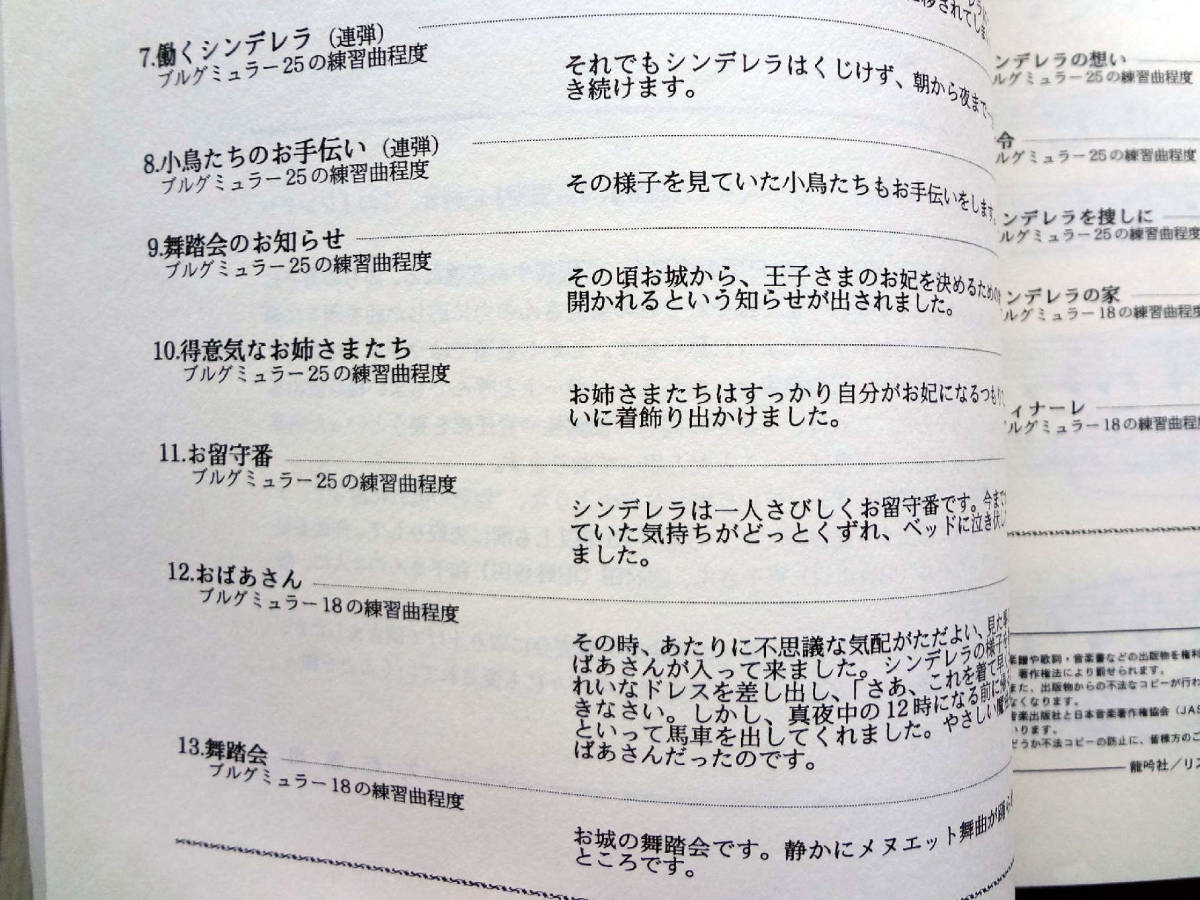 移されてしま
7.働くシンデレラ（連弾）
ブルグミュラー25の練習曲程度
それでもシンデレラはくじけず、朝から夜まで
き続けます。
8.小鳥たちのお手伝い（連弾）
ブルグミュラー25の練習曲程度
その様子を見ていた小鳥たちもお手伝いをします。
9.舞踏会のお知らせ
ブルグミュラー25の練習曲程度
その頃お城から、王子さまのお妃を決めるための
開かれるという知らせが出されました。
10.得意気なお姉さまたち
ブルグミュラー25の練習曲程度
お姉さまたちはすっかり自分がお妃になるつもり
いに着飾り出かけました。
11.お留守番
ブルグミュラー25の練習曲程度
シンデレラは一人さびしくお留守番です。今まで
ていた気持ちがどっとくずれ、ベッドに泣き伏し
ました。
12.おばあさん
ブルグミュラー18の練習曲程度
その時、あたりに不思議な気配がただよい、見た事
ばあさんが入って来ました。シンデレラの様子を
れいなドレスを差し出し、「さあ、これを着て早く
きなさい。しかし、真夜中の12時になる前に帰
といって馬車を出してくれました。やさしい魔
ばあさんだったのです。
13.舞踏会
ブルグミュラー18の練習曲程度
お城の舞踏会です。静かにメヌエット舞曲が踊ら
ところです。
ンデレラの想い
ルグミュラー25の練習曲程度
令
ルグミュラー25の練習曲程度
ンデレラを捜しに
ルグミュラー25の練習曲程度
ンデレラの家
ルグミュラー18の練習曲程度
ィナーレ
ルグミュラー18の練習曲程度
楽譜や歌詞・音楽書などの出版物を権利
著作権法により罰せられます。
また、出版物からの不法なコピーが行わ
なくなります。
音楽出版社と日本音楽著作権協会（JAS
います。
どうか不法コピーの防止に、皆様方のご
龍吟社／リズ